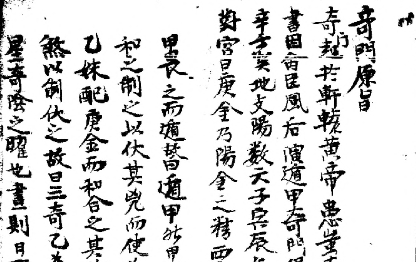 奇門原旨
奇門起於軒轅黃帝
書因命臣風后演遁甲奇門
地支陽數天子
對宮曰庚金乃陽金之精西
甲畏之而遁故曰遁甲
和之制之以伏其兇而使
乙妹配庚金而和合之其
煞以制伏之故曰三奇乙
星奇陰之曜也晝則日